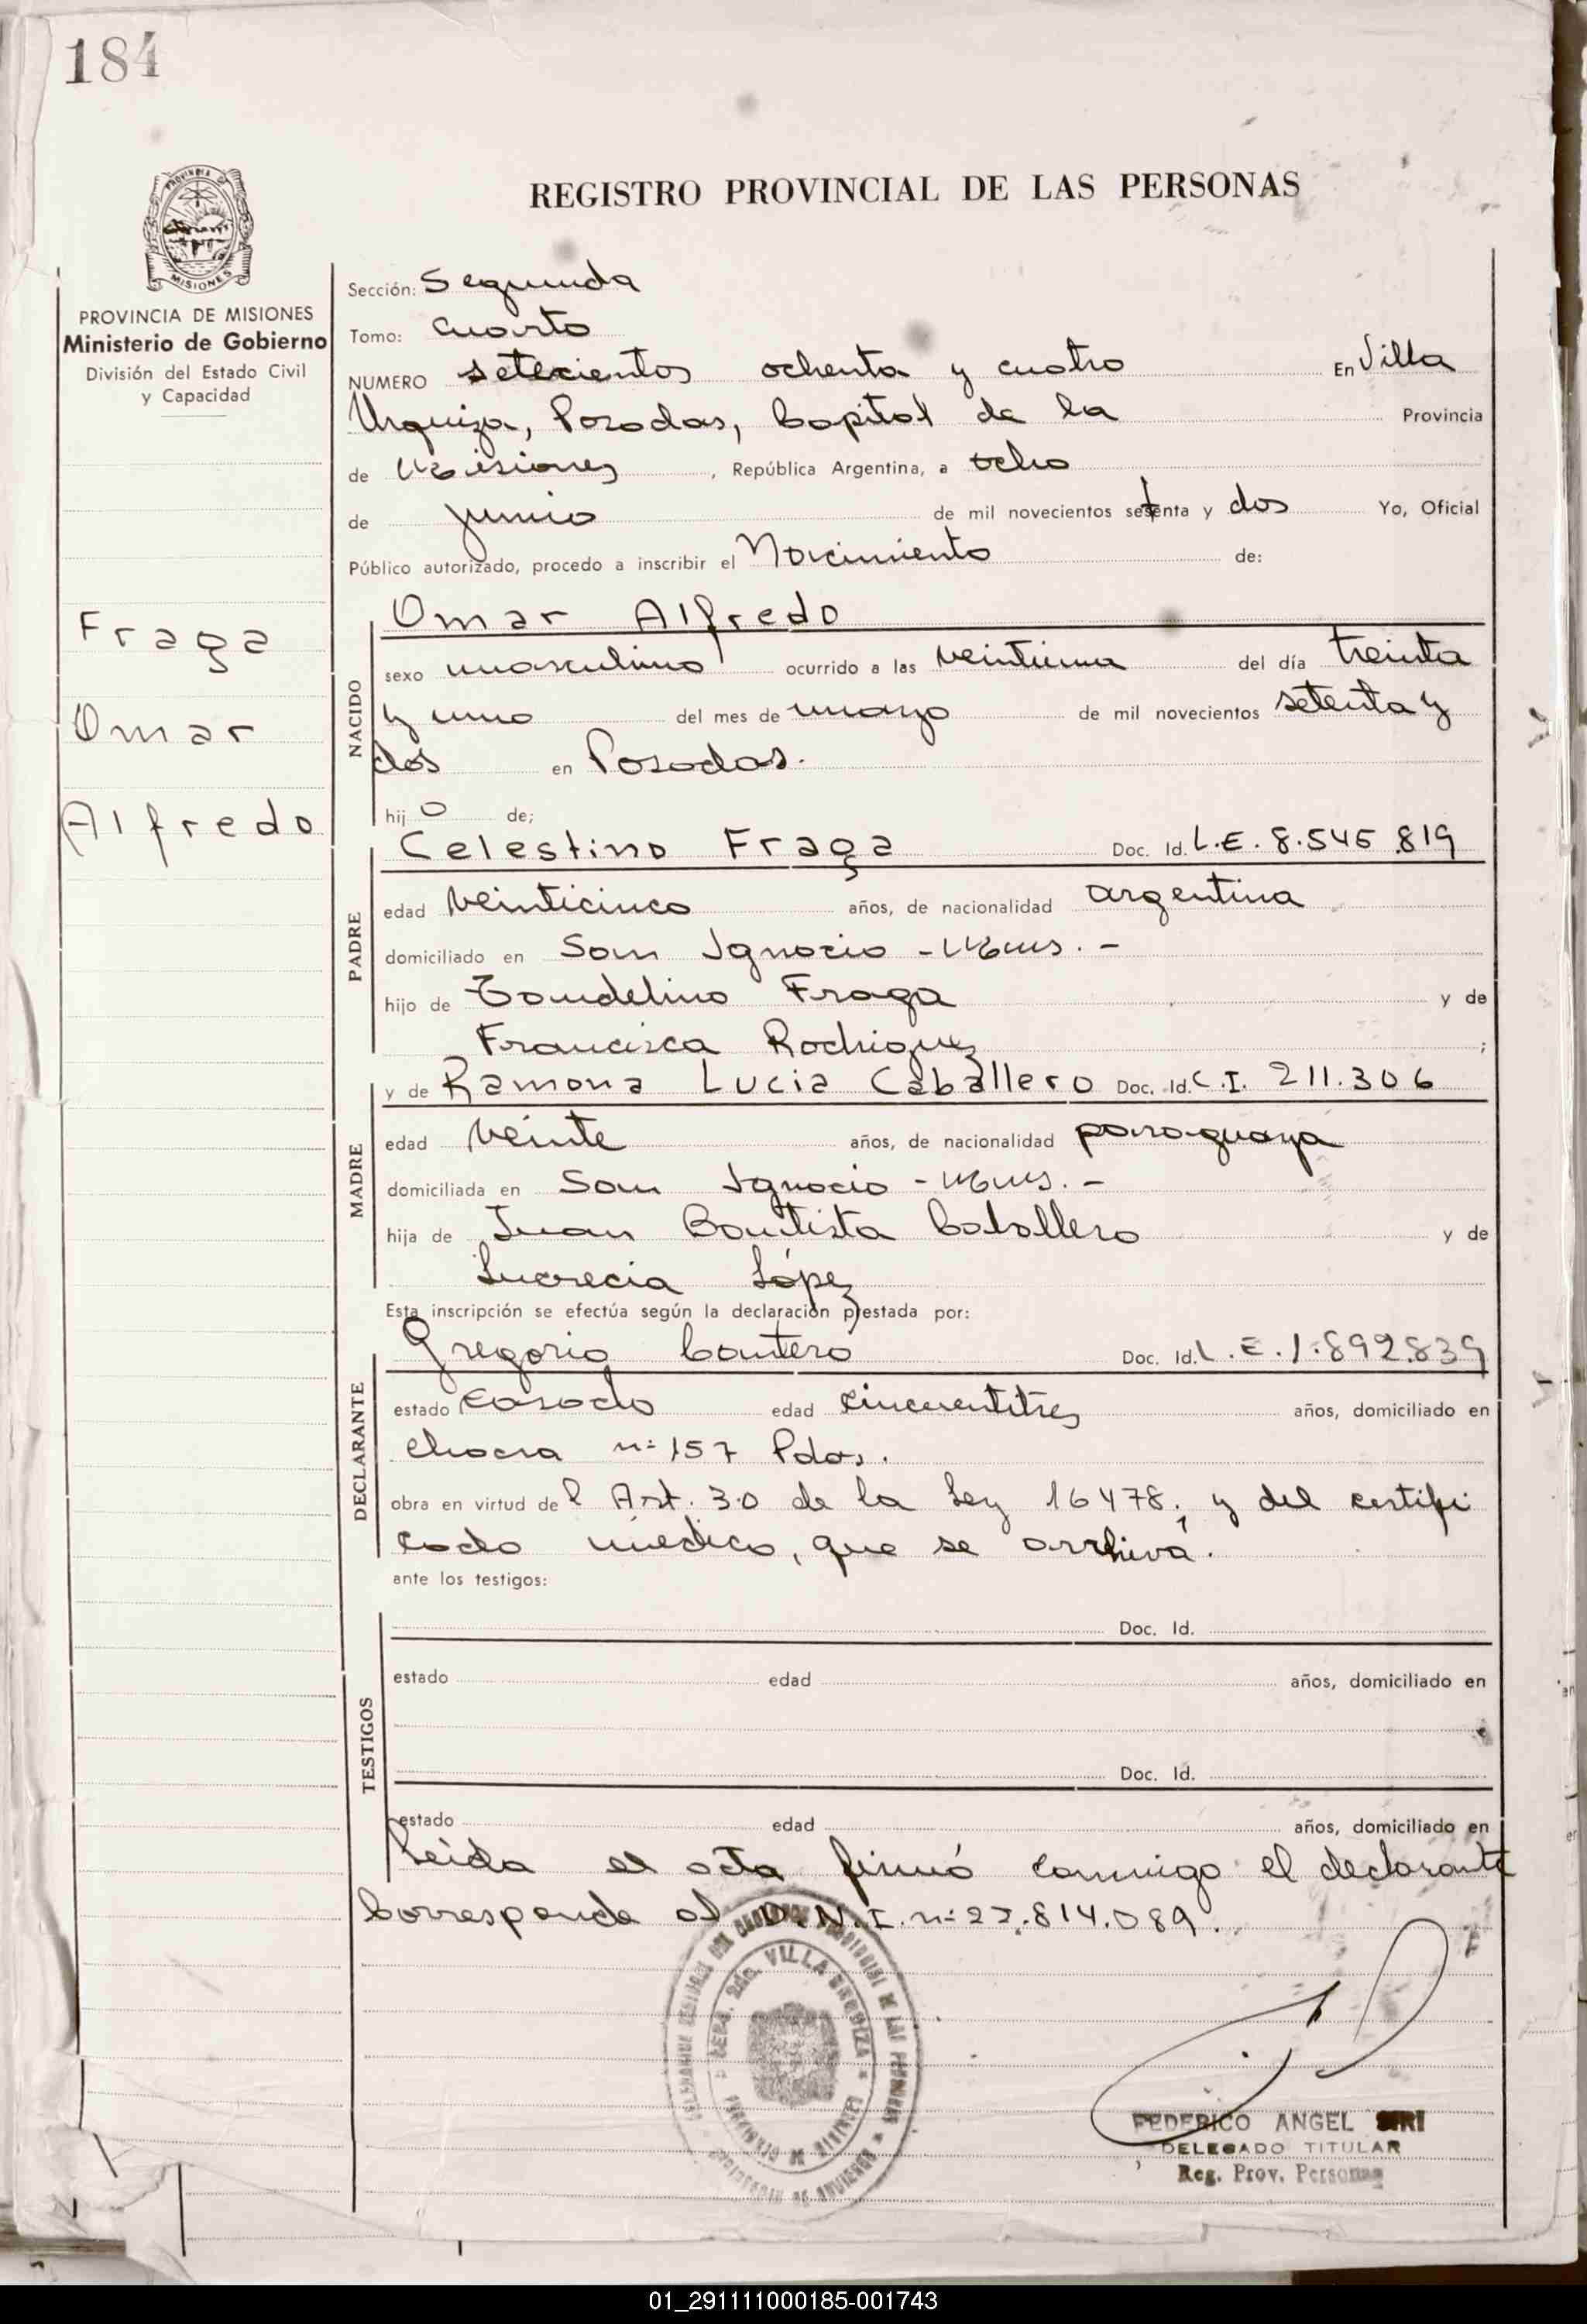 184
REGISTRO PROVINCIAL DE LAS PERSONAS
PROVINCIA DE MISIONES
Ministerio de Gobierno
División del Estado Civil
y Capacidad
Fraga
Omar
Alfredo
Sección: Segunda
Tomo: Cuarto
NUMERO setecientos ochenta y cuatro En Villa
Urquiza, Posadas, Capital de la Provincia
de Misiones, República Argentina, a ocho
de junio de mil novecientos setenta y dos Yo, Oficial
Público autorizado, procedo a inscribir el Nacimiento de:
NACIDO
Omar Alfredo
sexo masculino ocurrido a las veintiuna del día treinta
y uno del mes de marzo de mil novecientos setenta y
dos en Posadas.
hijo de;
PADRE
Celestino Fraga Doc. Id. L.E. 8.545.819
edad veinticinco años, de nacionalidad argentina
domiciliado en San Ignacio - Mnes. -
hijo de Fraga y de
Francisca Rodriguez;
MADRE
y de Ramona Lucia Caballero Doc. Id. C.I. 211.306
edad veinte años, de nacionalidad paraguaya
domiciliada en San Ignacio - Mnes. -
hija de Juan Bautista Caballero y de
Lucrecia López
Esta inscripción se efectúa según la declaración prestada por:
DECLARANTE
Gregorio Cantero Doc. Id. L.E. 1.892.839
estado casado edad cincuentitres años, domiciliado en
chacra nº 157 Pdas.
obra en virtud del Art. 30 de la Ley 16478; y del certifi
cado médico, que se archiva.
ante los testigos:
TESTIGOS
Doc. Id.
estado edad años, domiciliado en
Doc. Id.
estado edad años, domiciliado en
Leida el acta firmó conmigo el declarante
Corresponde al D.N.I. nº 22.814.089.
VILLA URQUIZA
FEDERICO ANGEL SIRI
DELEGADO TITULAR
Reg. Prov. Personas
01_291111000185-001743